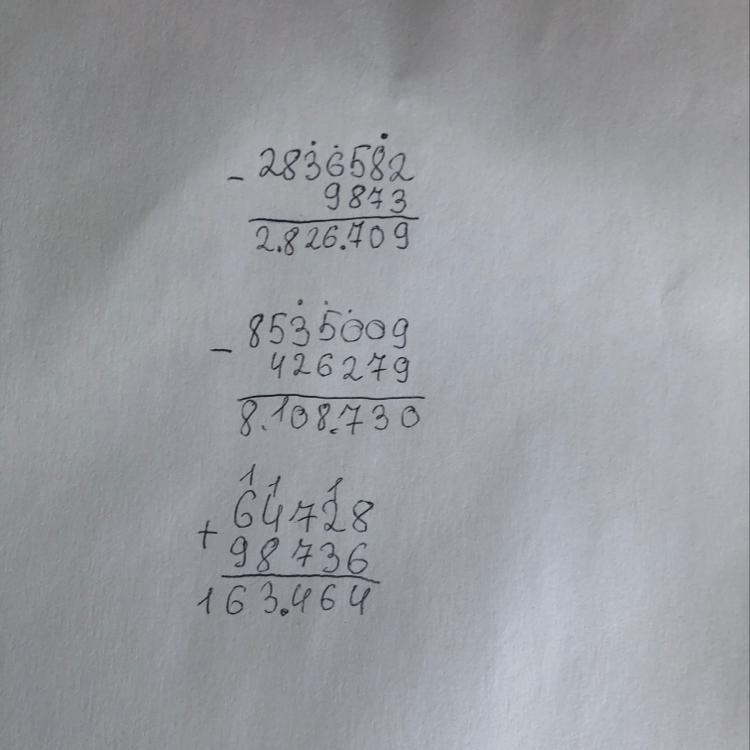 - 2836582
9873
2.826.709
- 8535009
426279
8.108.730
1 1 1
+ 64728
98736
163.464